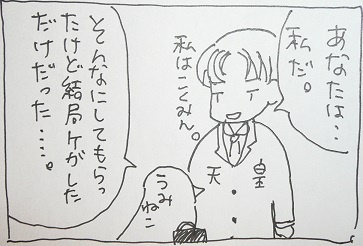 あなたは‥
私だ。
私はこくみん。
天皇
うみ
ねこ
とそんなにしてもらっ
たけど結局ケがした
だけだった‥‥。